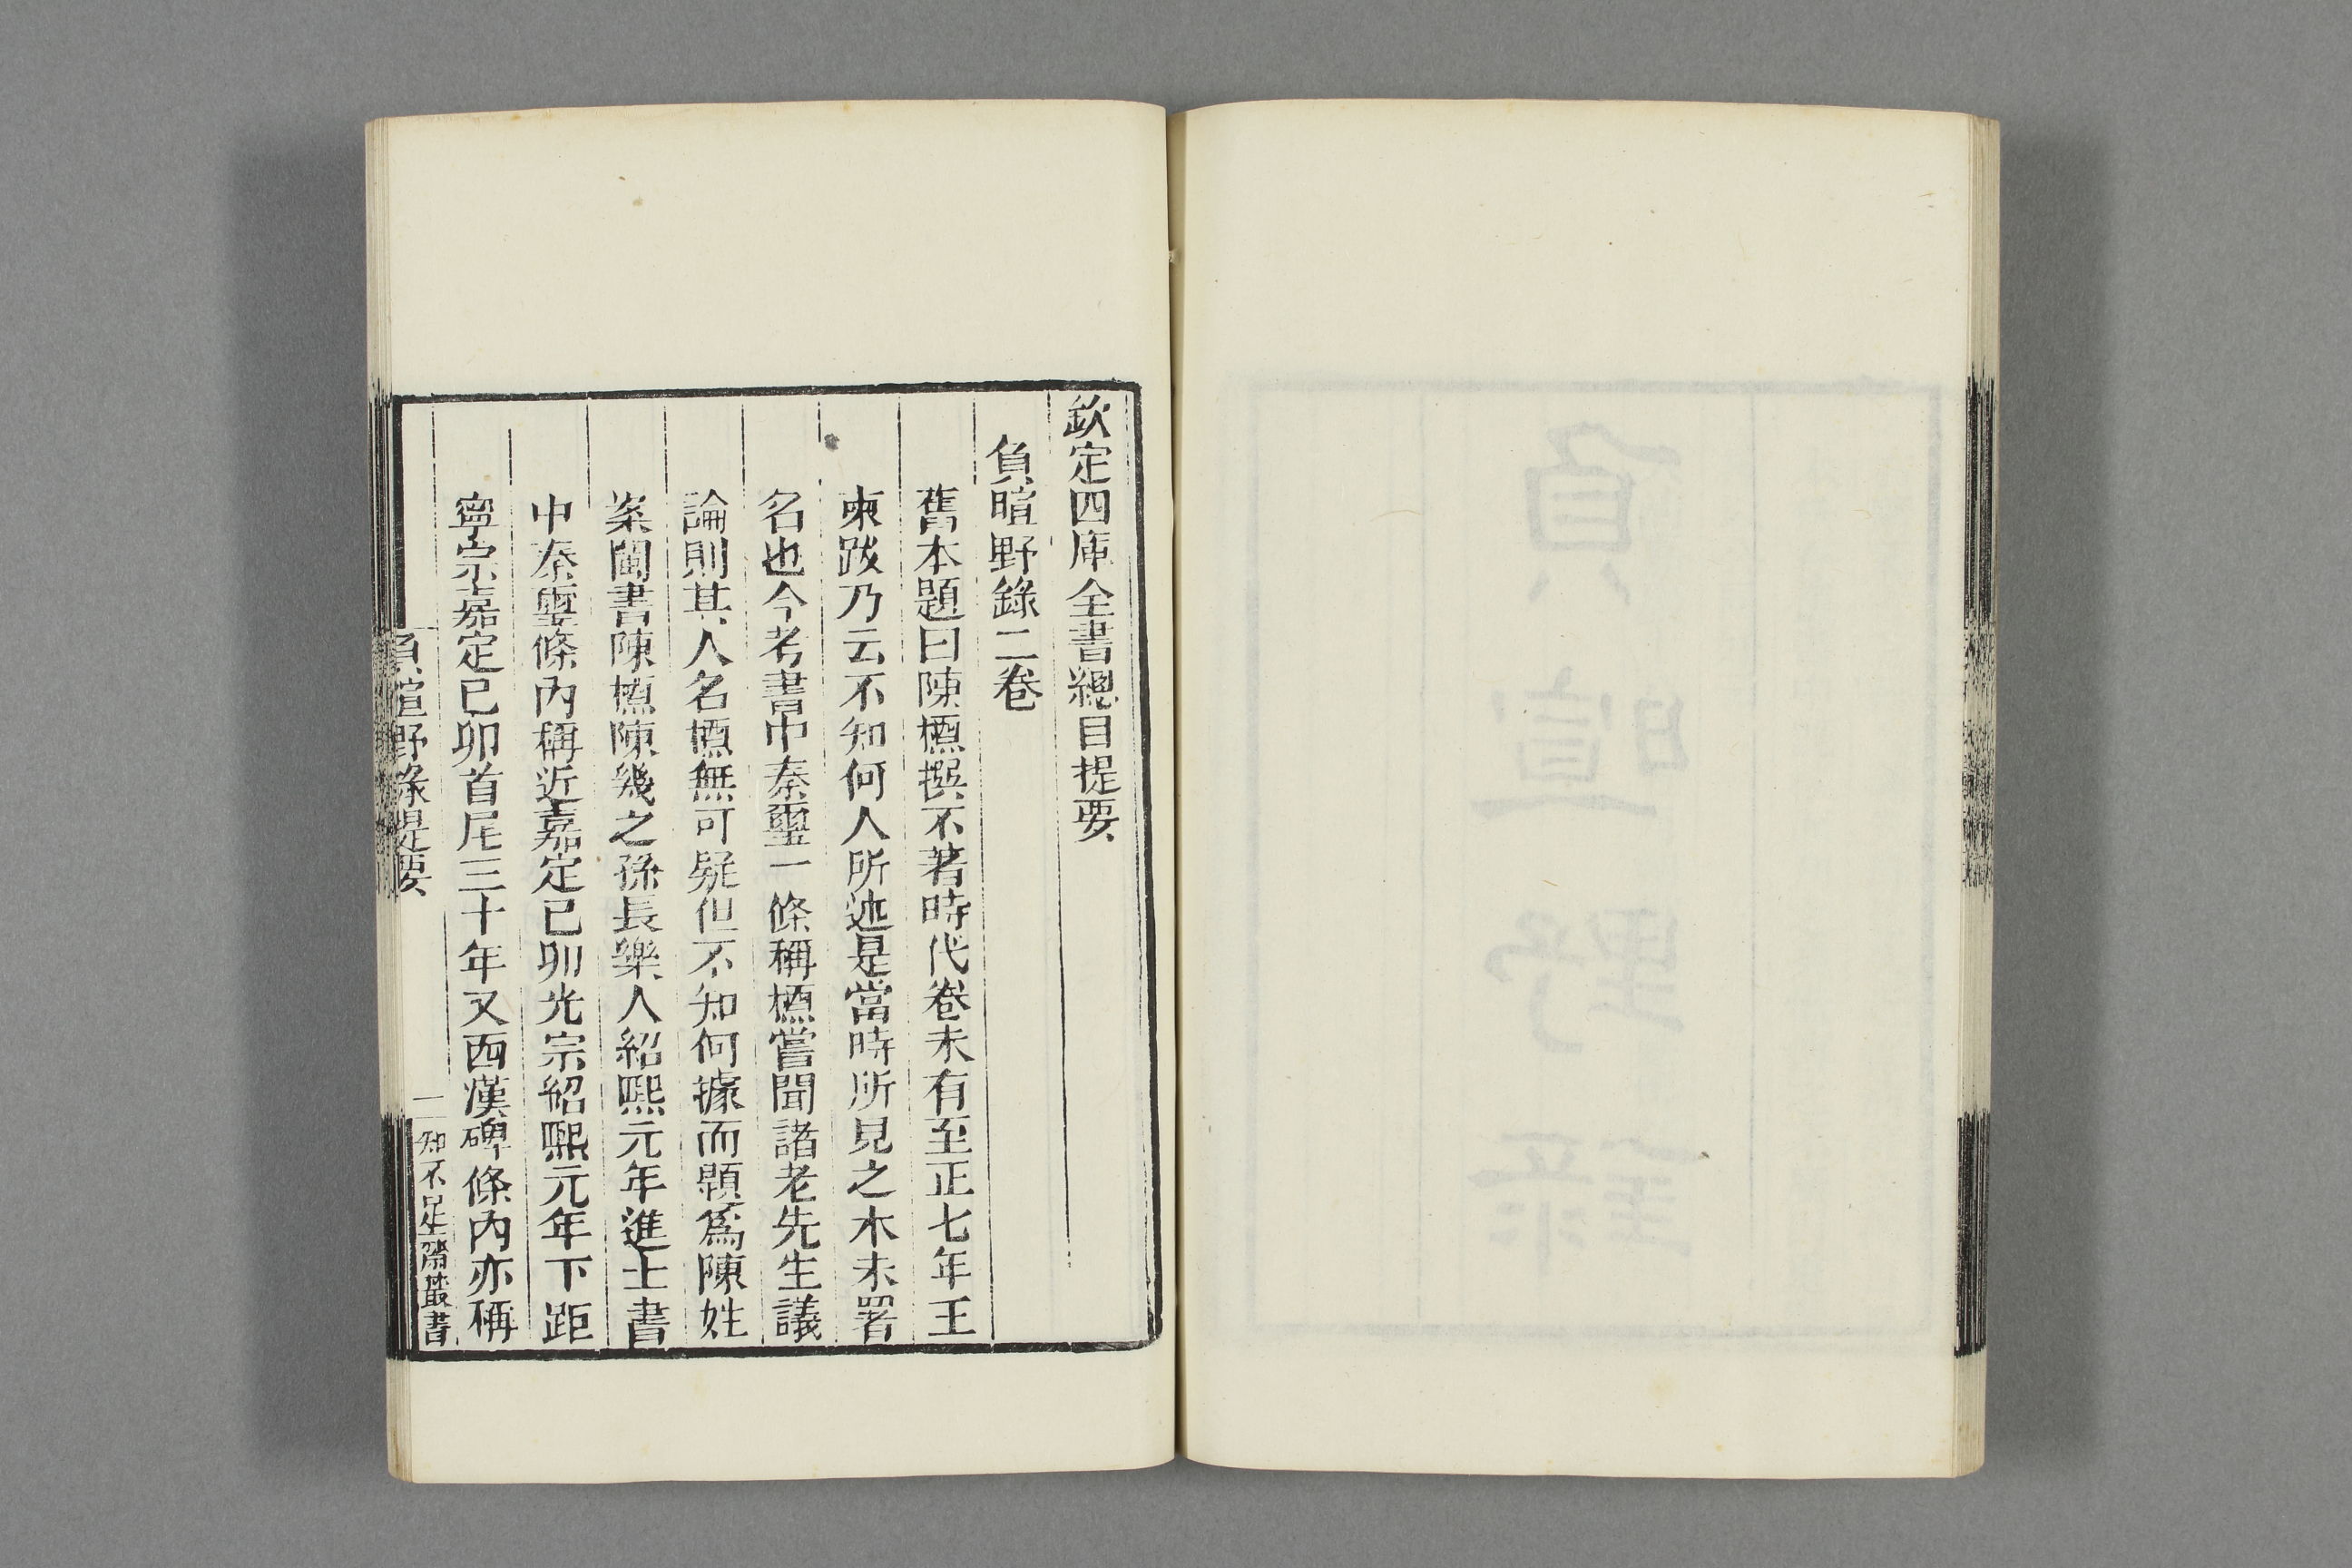 欽定四庫全書總目提要
負暄野錄二卷
舊本題曰陳槱撰不著時代卷未有至正七年王
東跋乃云不知何人所述是當時所見之木未署
名也今考書中秦璽一條稱槱嘗聞諸老先生議
論則其人名槱無可疑但不知何據而題爲陳姓
案閩書陳槱陳幾之孫長樂人紹熙元年進士書
中秦璽條內稱近嘉定已卯光宗紹熙元年下距
寧宗嘉定已卯首尾三十年又西漢碑條內亦稱
負暄野錄提要
一
知不足齋叢書
負暄野錄